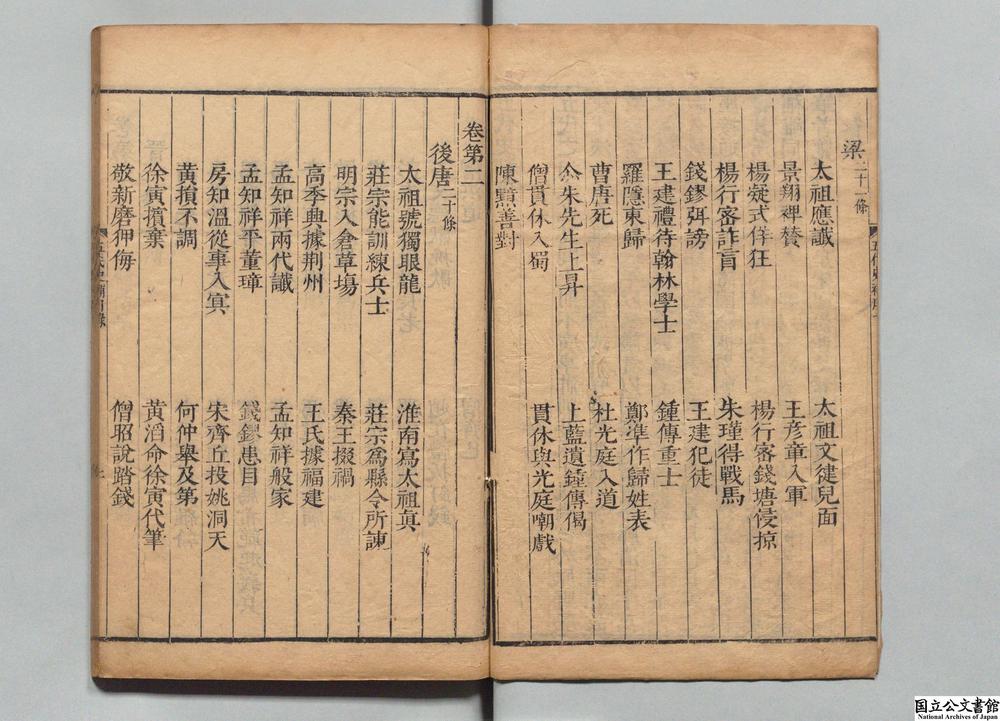 梁二十一條
太祖應讖 太祖文徤兒面
景翔裨贊 王彦章入軍
楊凝式佯狂 楊行宻錢塘侵掠
楊行宻詐盲 朱瑾得戰馬
錢鏐弭謗 王建犯徒
王建禮待翰林學士 鍾傳重士
羅隱東歸 鄭凖作歸姓表
曹唐死 杜光庭入道
朱先生上昇 上藍遺鍾傳偈
僧貫休入蜀 貫休與光庭嘲戲
陳黯善對
卷第二
後唐二十條
太祖號獨眼龍 淮南寫太祖真
莊宗能訓練兵士 莊宗爲縣令所諫
明宗入倉草場 秦王掇禍
高季興據荆州 王氏據福建
孟知祥兩代讖 孟知祥般家
孟知祥平董璋 錢鏐患目
房知溫從事入冥 宋齊丘投姚洞天
黄損不調 何仲舉及第
徐寅擯棄 黄滔命徐寅代筆
敬新磨狎侮 僧昭說踏錢
国立公文書館
National Archives of Japan